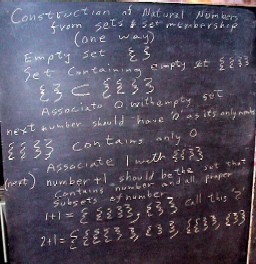 Construction of Natural Numbers
from sets & set membership
(one way)
Empty set { }
Set Containing empty set {{ }}
{ } ⊂ {{ }}
Associate 0 with empty set
next number should have 0 as its only member
{{ }} contains only 0
Associate 1 with {{ }}
(next) number +1 should be the set that
contains number and all proper
subsets of number
1+1 = { {{ }}, { } } call this "2"
2+1 =